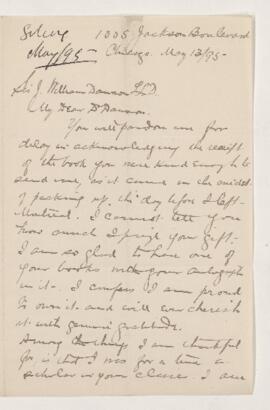 1005 Jackson Boulevard
May/95 Chicago. May 13/95
Sir J. William Dawson LLD.
My Dear Dr Dawson.
You will pardon me for
delay in acknowledging the receipt
of the book you were kind enough to
send me, as it came in the midst
of packing up, the day before I left
Montreal. I cannot tell you
how much I prize your gift.
I am so glad to have one of
your books with your autograph
in it. I confess I am proud
to own it and will cherish
it with genuine gratitude.
Among the things I am thankful
for is that I was for a time a
scholar in your classes. I am